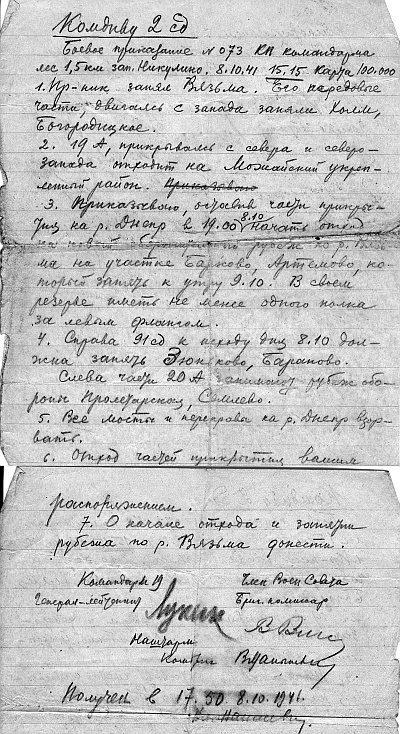 Комдиву 2 сд
Боевое приказание № 073 КП командарма
лес 1,5 км зап. Никулино. 8.10.41 15.15 Карта 100.000
1. Пр-ник занял Вязьма. Его передовые
части, двигаясь с запада заняли Холм,
Богородицкое.
2. 19 А, прикрываясь с севера и северо-
запада отходит на Можайский укреп-
ленный район. Приказываю
3. Приказываю, оставив части прикры-
тия на р. Днепр в 19.00 8.10 начать отход
на новый оборонительный рубеж по р. Вязь-
ма на участке Барково, Артемово, ко-
торый занять к утру 9.10. В своем
резерве иметь не менее одного полка
за левым флангом.
4. Справа 91 сд к исходу дня 8.10 дол-
жна занять ково, Бараново.
Слева части 20 А занимают рубеж обо-
роны Пролетарская, Семлево.
5. Все мосты и переправы на р. Днепр взор-
вать.
6. Отход частей прикрытия вашим
распоряжением.
7. О начале отхода и занятии
рубежа по р. Вязьма донести.
Командарм 19 Член Воен Совета
Генерал-лейтенант Лукин Бриг. комиссар
Наштарм
Комбриг
Получен в 17.50 8.10.1941.